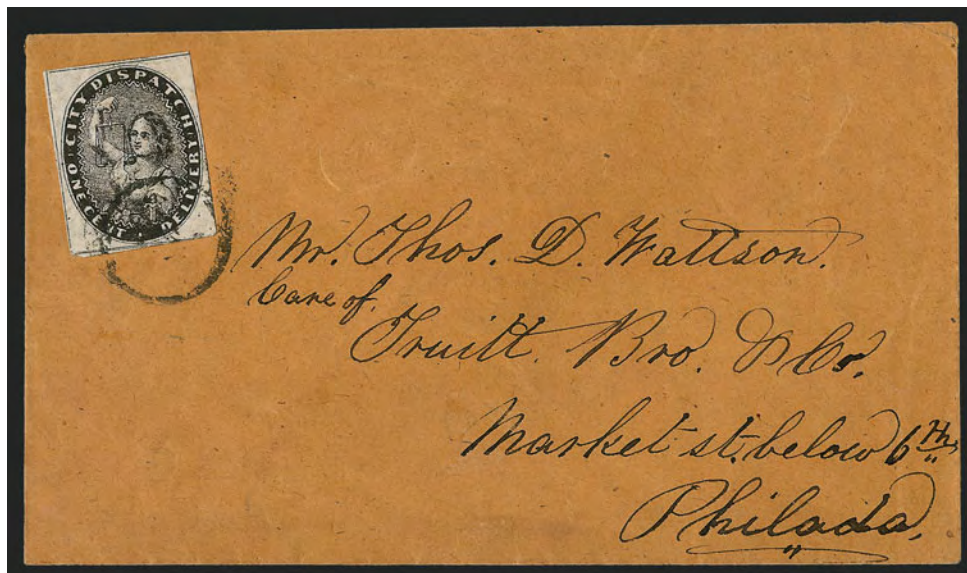 CITY DISPATCH DELIVERY
ONE CENT
Mr. Thos. D. Wattson.
Care of.
Truitt. Bro. & Co.
Market st. below 6th
Philada.